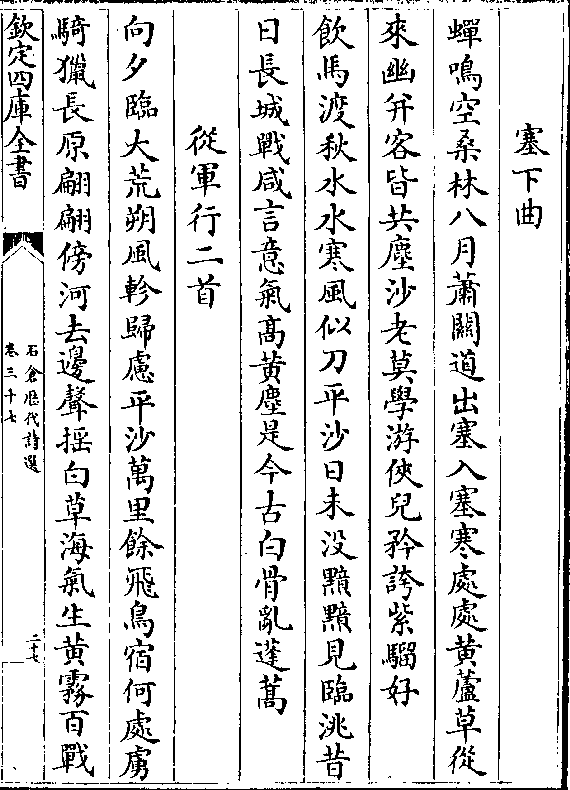 塞下曲
蟬鳴空桑林八月蕭關道出塞入塞寒處處黄蘆草從
來幽并客皆共塵沙老莫學游俠兒矜誇紫騮好
飲馬渡秋水水寒風似刀平沙日未没黯黯見臨洮昔
日長城戰咸言意氣髙黄塵是今古白骨亂蓬蒿
從軍行二首
向夕臨大荒朔風軫歸慮平沙萬里餘飛鳥宿何處虜
騎獵長原翩翩傍河去邊聲揺白草海氣生黄霧百戰
欽定四庫全書
石倉歴代詩選
卷三十七
二十七